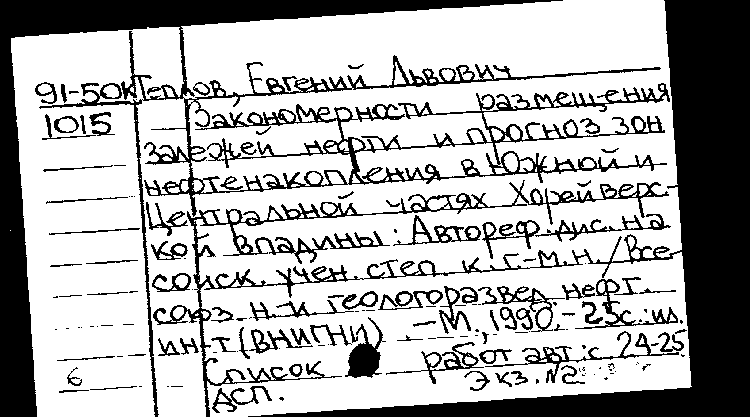 91-50К Теплов, Евгений Львович
1015 Закономерности размещения
залежей нефти и прогноз зон
нефтенакопления в Южной и
Центральной частях Хорейверс-
кой впадины: Автореф. дис. на
соиск. учен. степ. к.г.-м.н. / Все-
союз. н.-и. геологоразвед. нефт.
ин-т (ВНИГНИ). - М., 1990. - 25с.: ил.
6 Список работ авт.: с. 24-25
ДСП. Экз. №2